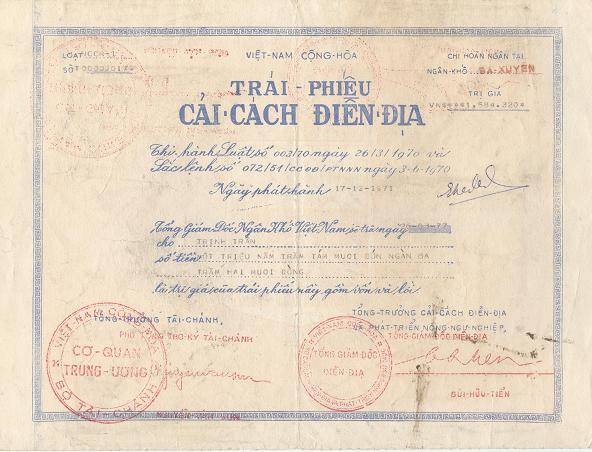 VIỆT-NAM CỘNG-HÒA
LOẠT CCRĐ-1
SỐ
CHỈ HOÀN NGÂN TẠI
NGÂN-KHỐ BA-XUYEN
TRỊ GIÁ
VN$****1,584.320*
TRÁI-PHIẾU
CẢI-CÁCH ĐIỀN-ĐỊA
Thi hành Luật số 003/70 ngày 26/3/1970 và
Sắc lệnh số 072/51/CCĐĐ/PTNNN ngày 3-6-1970
Ngày phát hành 17-12-1971
Tổng Giám Đốc Ngân Khố Việt Nam sẽ trả ngày
cho TRINH TRÂN
số tiền MỘT TRIỆU NĂM TRĂM TÁM MƯƠI BỐN NGÀN BA
TRĂM HAI MƯƠI ĐỒNG
là trị giá của trái phiếu này gồm vốn và lời.
TỔNG-TRƯỞNG TÀI-CHÁNH,
TỔNG-TRƯỞNG CẢI-CÁCH ĐIỀN-ĐỊA
VÀ PHÁT-TRIỂN NÔNG-NGƯ-NGHIỆP,
TỔNG-GIÁM-ĐỐC ĐIỀN-ĐỊA
VIỆT-NAM CỘNG-HÒA
CƠ-QUAN
TRUNG-ƯƠNG
BỘ TÀI-CHÁNH
TỔNG GIÁM-ĐỐC
ĐIỀN-ĐỊA
BÙI-HỮU-TIẾN